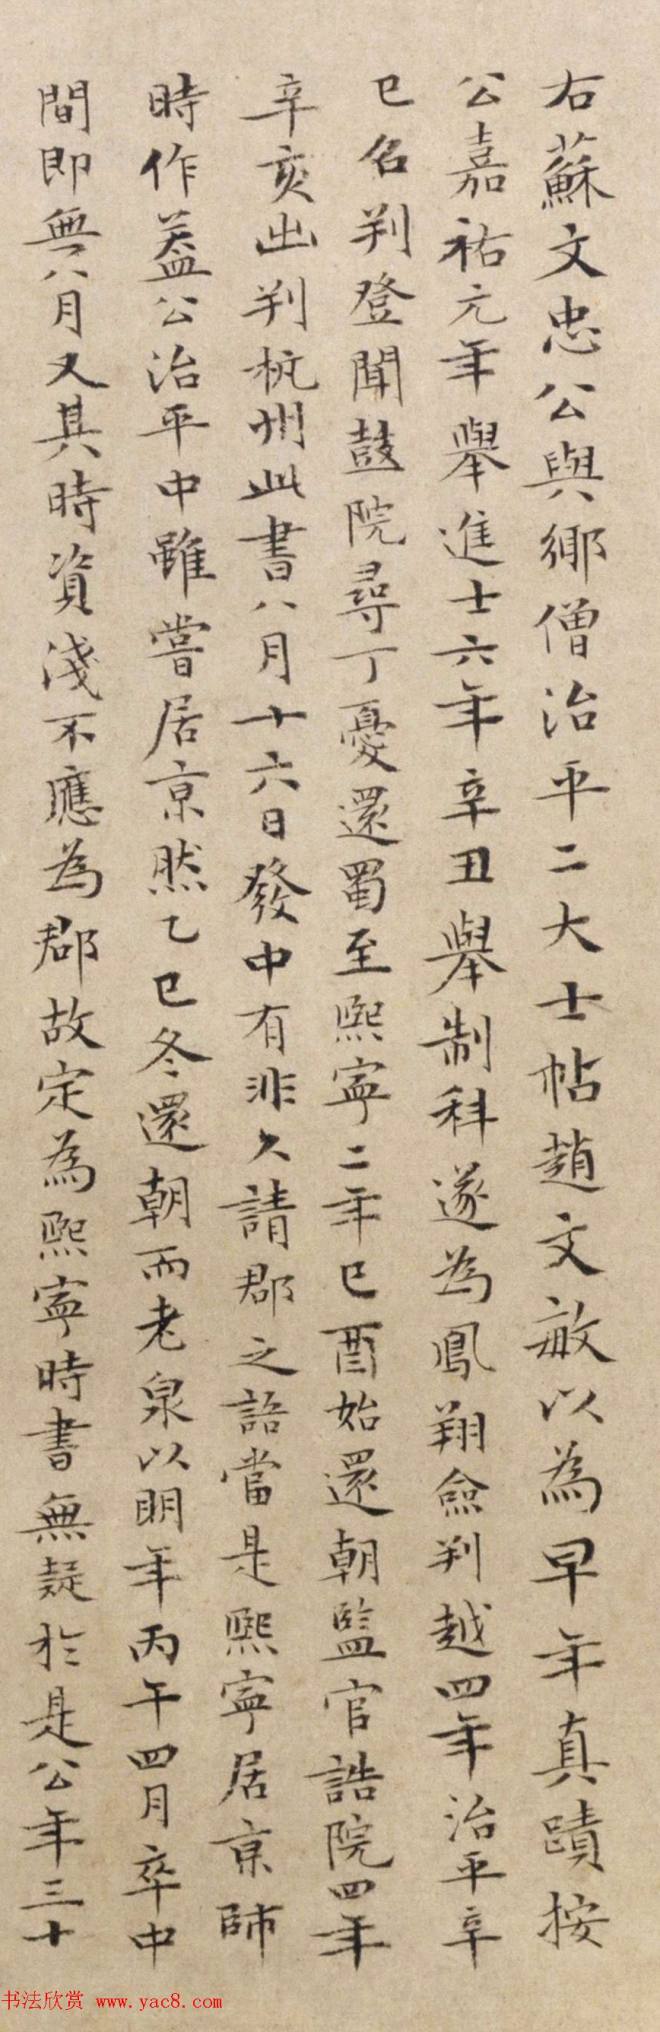 右蘇文忠公與鄉僧治平二大士帖趙文敏以為早年真蹟按
公嘉祐元年舉進士六年辛丑舉制科遂為鳳翔僉判越四年治平辛
巳名判登聞鼓院尋丁憂還蜀至熙寧二年巳酉始還朝監官誥院四年
辛亥出判杭州此書八月十六日發中有非久請郡之語當是熙寧居京師
時作蓋公治平中雖嘗居京然乙巳冬還朝而老泉以明年丙午四月卒中
間即無八月又其時資淺不應為郡故定為熙寧時書無疑於是公年三十
书法欣赏 www.yac8.com